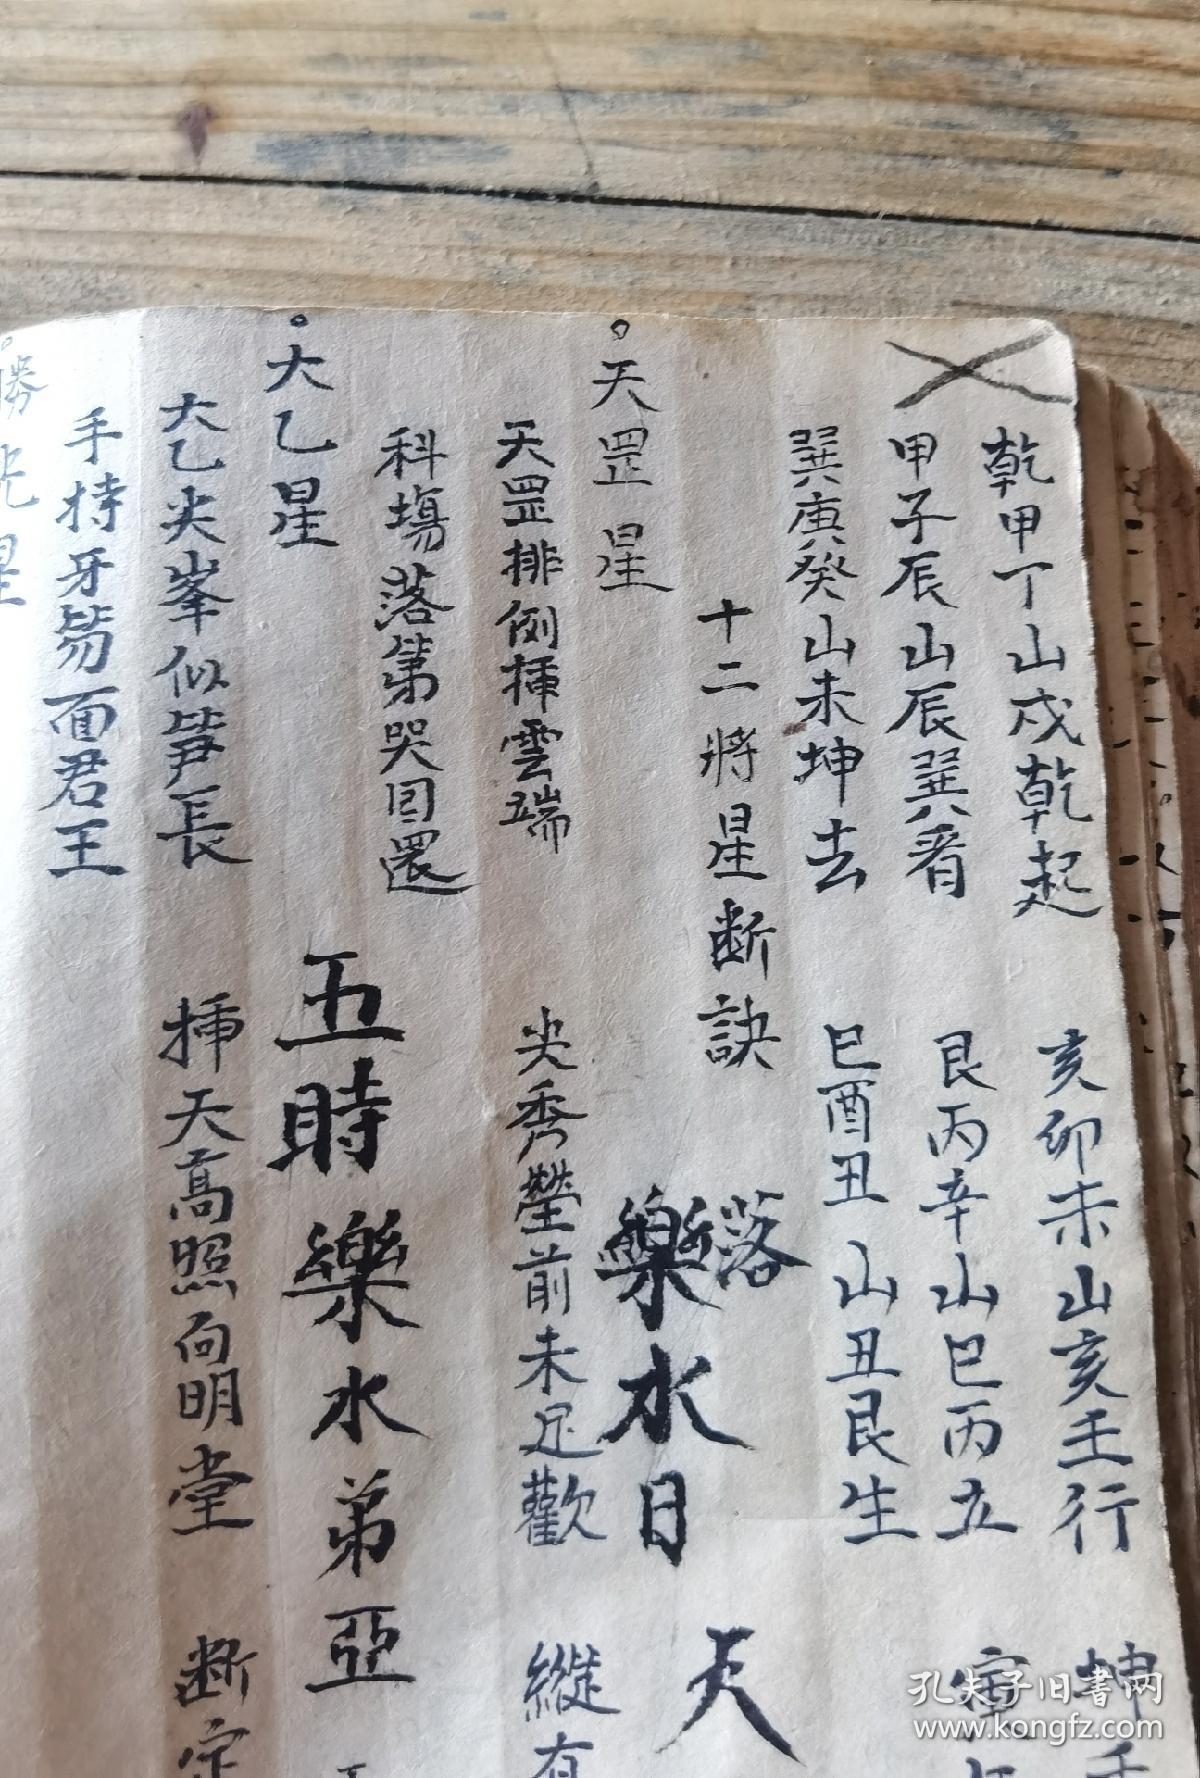 乾甲丁山戌乾起 亥卯未山亥壬行 坤
甲子辰山辰巽看 艮丙辛山巳丙立 寅
巽庚癸山未坤去 巳酉丑山丑艮生
十二將星断訣
落
天罡星
樂水日 天
天罡排例揷雲端 尖秀塋前未足歡 縱有
科塲落第哭回還
大乙星
五時樂水弟亞
大乙尖峯似笋長 揷天高照向明堂 断定
手持牙笏面君王
勝光星
孔夫子旧书网
www.kongfz.com